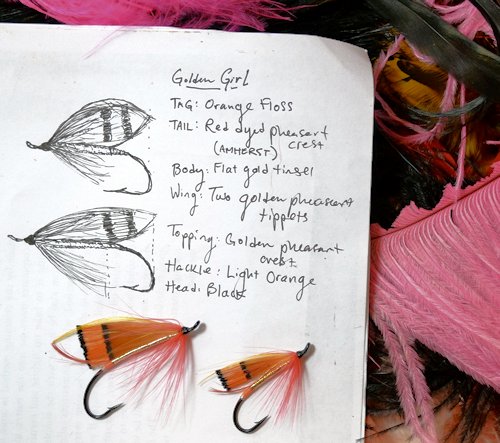 Golden Girl
TAG: Orange Floss
TAIL: Red dyed pheasant
(AMHERST) crest
Body: Flat gold tinsel
Wing: Two golden pheasant
tippets
Topping: Golden pheasant
crest
Hackle: Light Orange
Head: Black